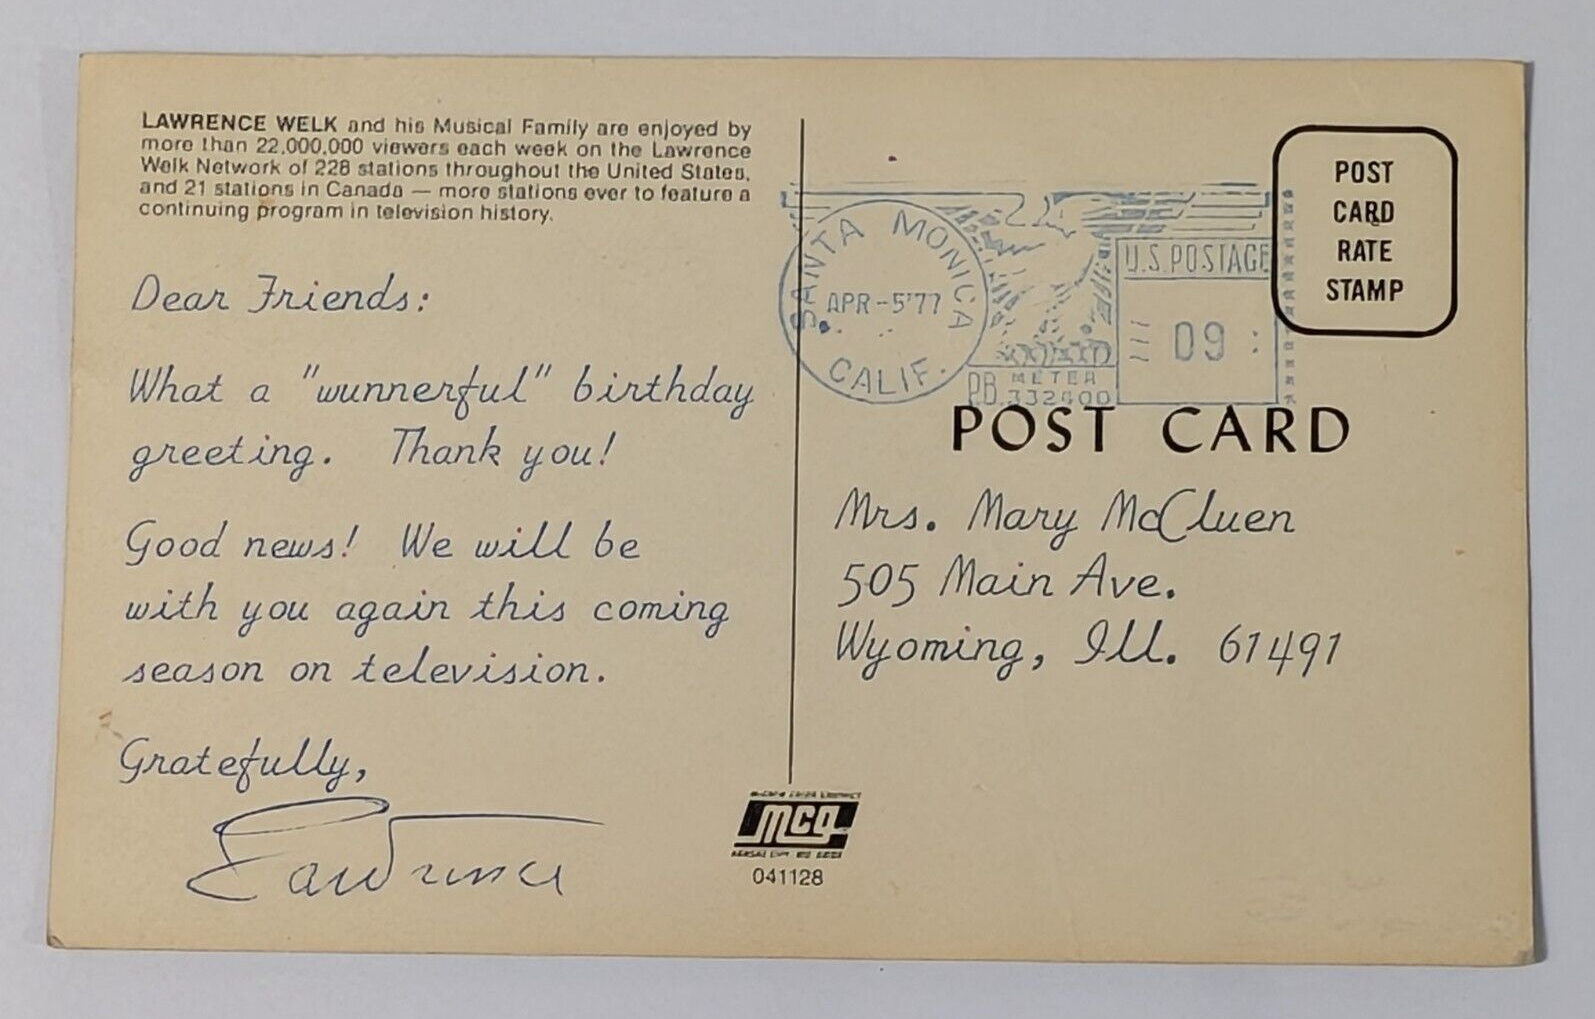 LAWRENCE WELK and his Musical Family are enjoyed by
more than 22,000,000 viewers each week on the Lawrence
Welk Network of 228 stations throughout the United States,
and 21 stations in Canada — more stations ever to feature a
continuing program in television history.
Dear Friends:
What a "wunnerful" birthday
greeting. Thank you!
Good news! We will be
with you again this coming
season on television.
Gratefully,
Lawrence
SANTA MONICA
APR-5'77
CALIF.
U.S. POSTAGE
09
P.B. METER
332400
POST
CARD
RATE
STAMP
POST CARD
Mrs. Mary McCluen
505 Main Ave.
Wyoming, Ill. 61491
MCG
041128